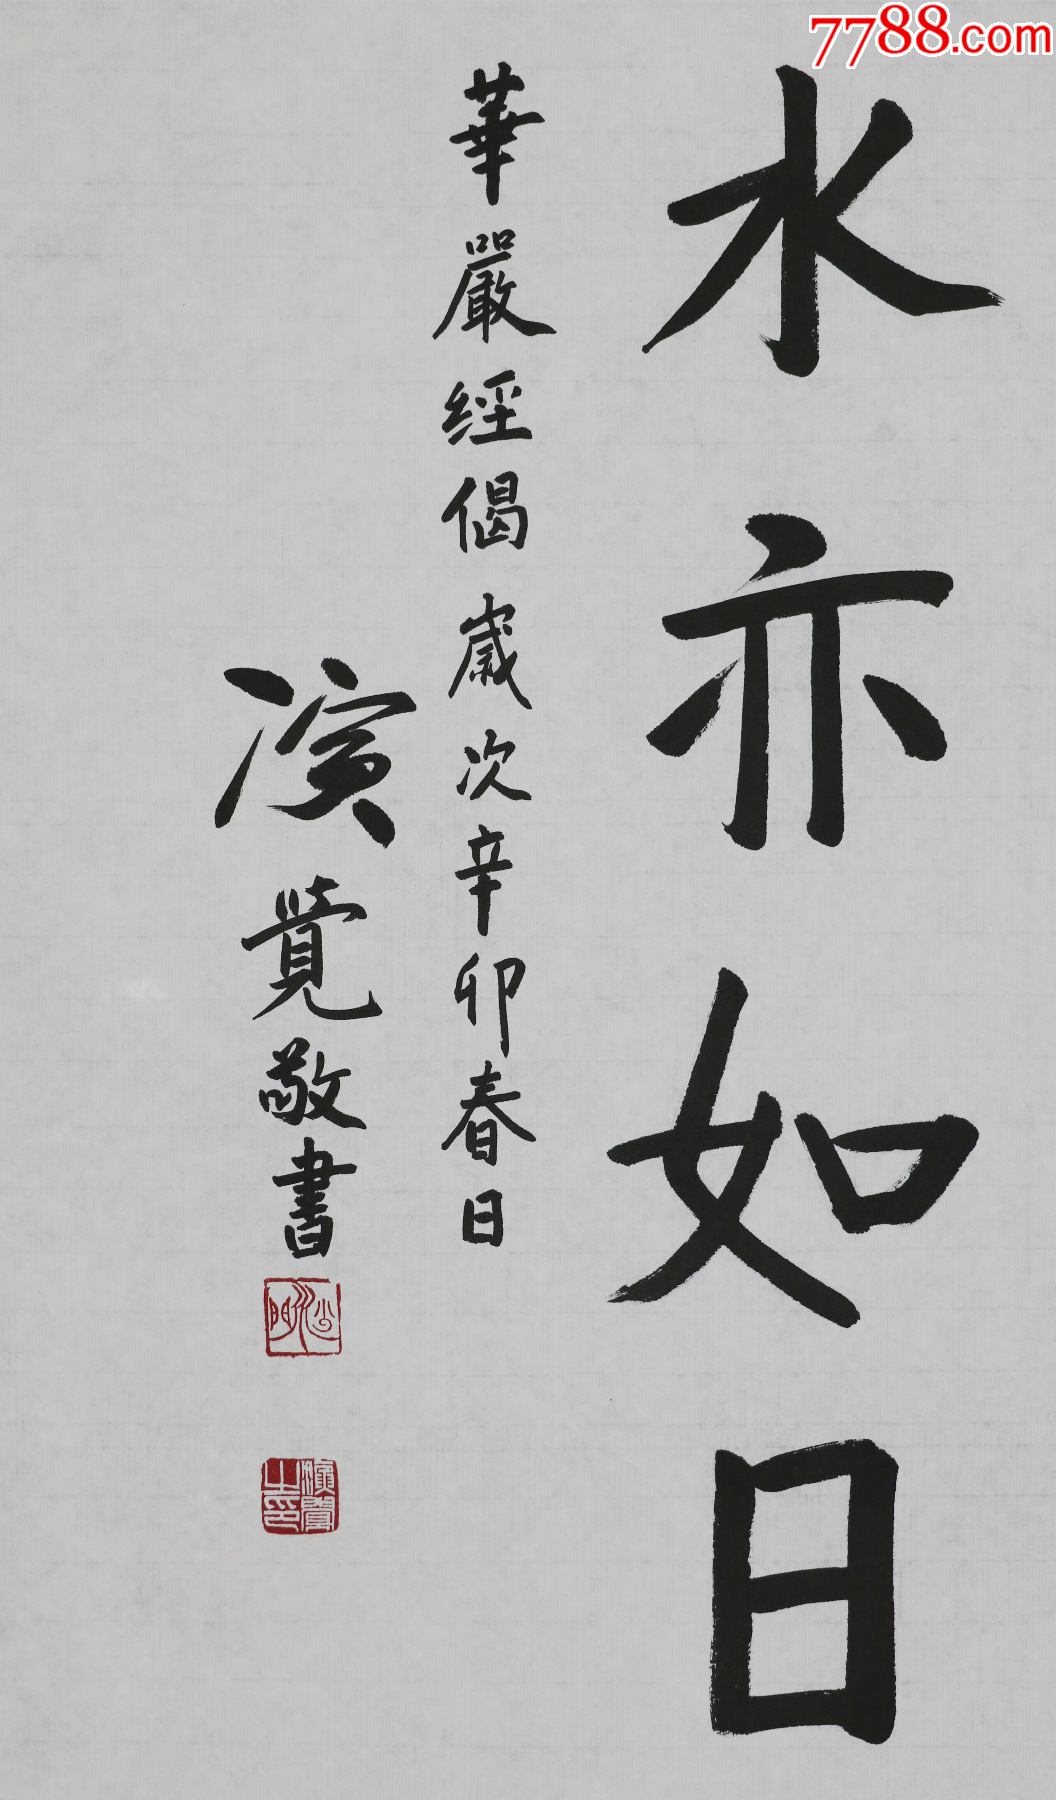 7788.com
水亦如日
華嚴經偈歲次辛卯春日
演覺敬書
沙門
演覺之印